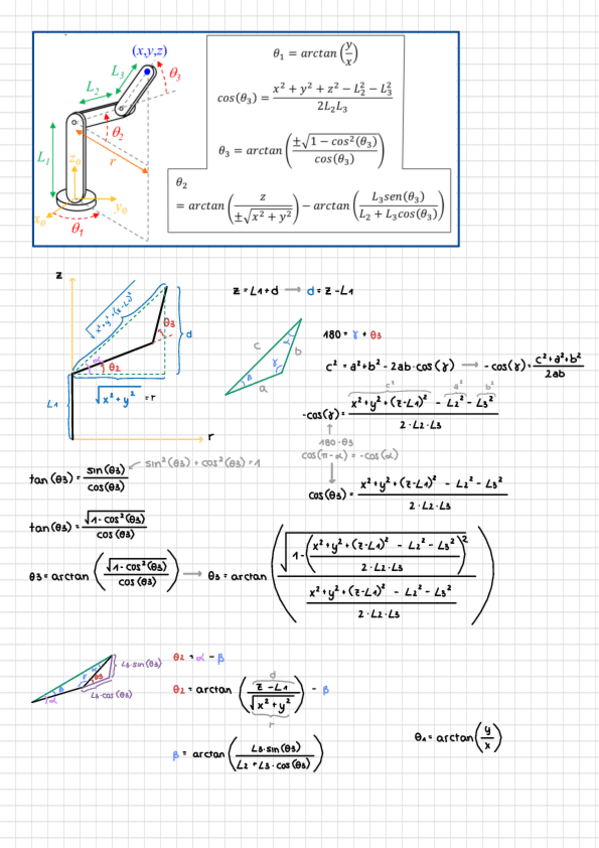 (x,y,z)
L₃
θ₃
L₂
θ₂
L₁
r
z₀
y₀
x₀
θ₁
θ₁ = arctan(y/x)
cos(θ₃) = (x² + y² + z² − L₂² − L₃²)/(2L₂L₃)
θ₃ = arctan(±√(1 − cos²(θ₃))/cos(θ₃))
θ₂
= arctan(z/(±√(x² + y²))) − arctan(L₃sen(θ₃)/(L₂ + L₃cos(θ₃)))
z
√(x²+y²+(z-L1)²)
θ3
d
α
θ2
L1
√(x²+y²) = r
r
z = L1+d → d = z-L1
c
α
b
β
γ
a
180 = γ + θ3
c² = a²+b² - 2ab·cos(γ) → -cos(γ) = (c²+a²+b²)/(2ab)
c² a² b²
-cos(γ) = (x²+y²+(z-L1)² - L2² - L3²)/(2·L2·L3)
180-θ3
cos(π-α) = -cos(α)
cos(θ3) = (x²+y²+(z-L1)² - L2² - L3²)/(2·L2·L3)
tan(θ3) = sin(θ3)/cos(θ3) ← sin²(θ3) + cos²(θ3) = 1
tan(θ3) = √(1-cos²(θ3))/cos(θ3)
θ3 = arctan(√(1-cos²(θ3))/cos(θ3)) → θ3 = arctan(√(1-((x²+y²+(z-L1)² - L2² - L3²)/(2·L2·L3))²)/((x²+y²+(z-L1)² - L2² - L3²)/(2·L2·L3)))
L3·sin(θ3)
β
θ3
α
L3·cos(θ3)
θ2 = α - β
d
θ2 = arctan((z-L1)/√(x²+y²)) - β
r
θ1 = arctan(y/x)
β = arctan(L3·sin(θ3)/(L2+L3·cos(θ3)))